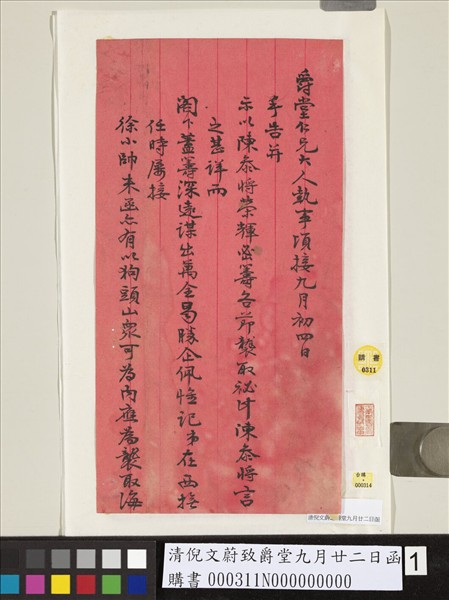 爵堂仁兄大人執事頃接九月初四日
手告并
示以陳參將榮輝密籌各節襲取祕計陳參將言
之甚詳而
閣下藎籌深遠謀出萬全曷勝企佩惟記弟在西撫
任時屢接
徐小帥來函亦有以狗頭山眾可為內應為襲取海
購書
0311
台購
000314
清倪文蔚致爵堂九月廿二日函
購書 000311N000000000
1